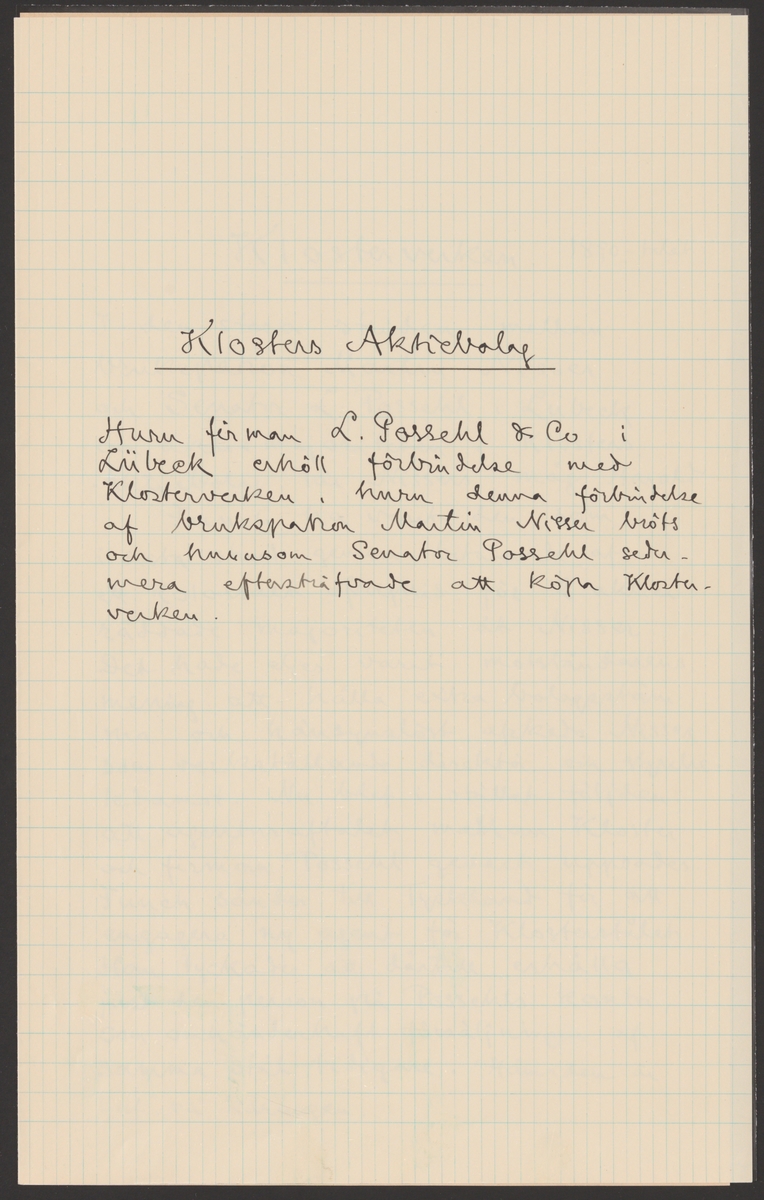 Klosters Aktiebolag
Huru firman L. Possehl & Co i
Lübeck erhöll förbindelse med
Klosterverken, huru denna förbindelse
af brukspatron Martin Nisser bröts
och hurusom Senator Possehl seder-
mera eftersträfvade att köpa Kloster-
verken.